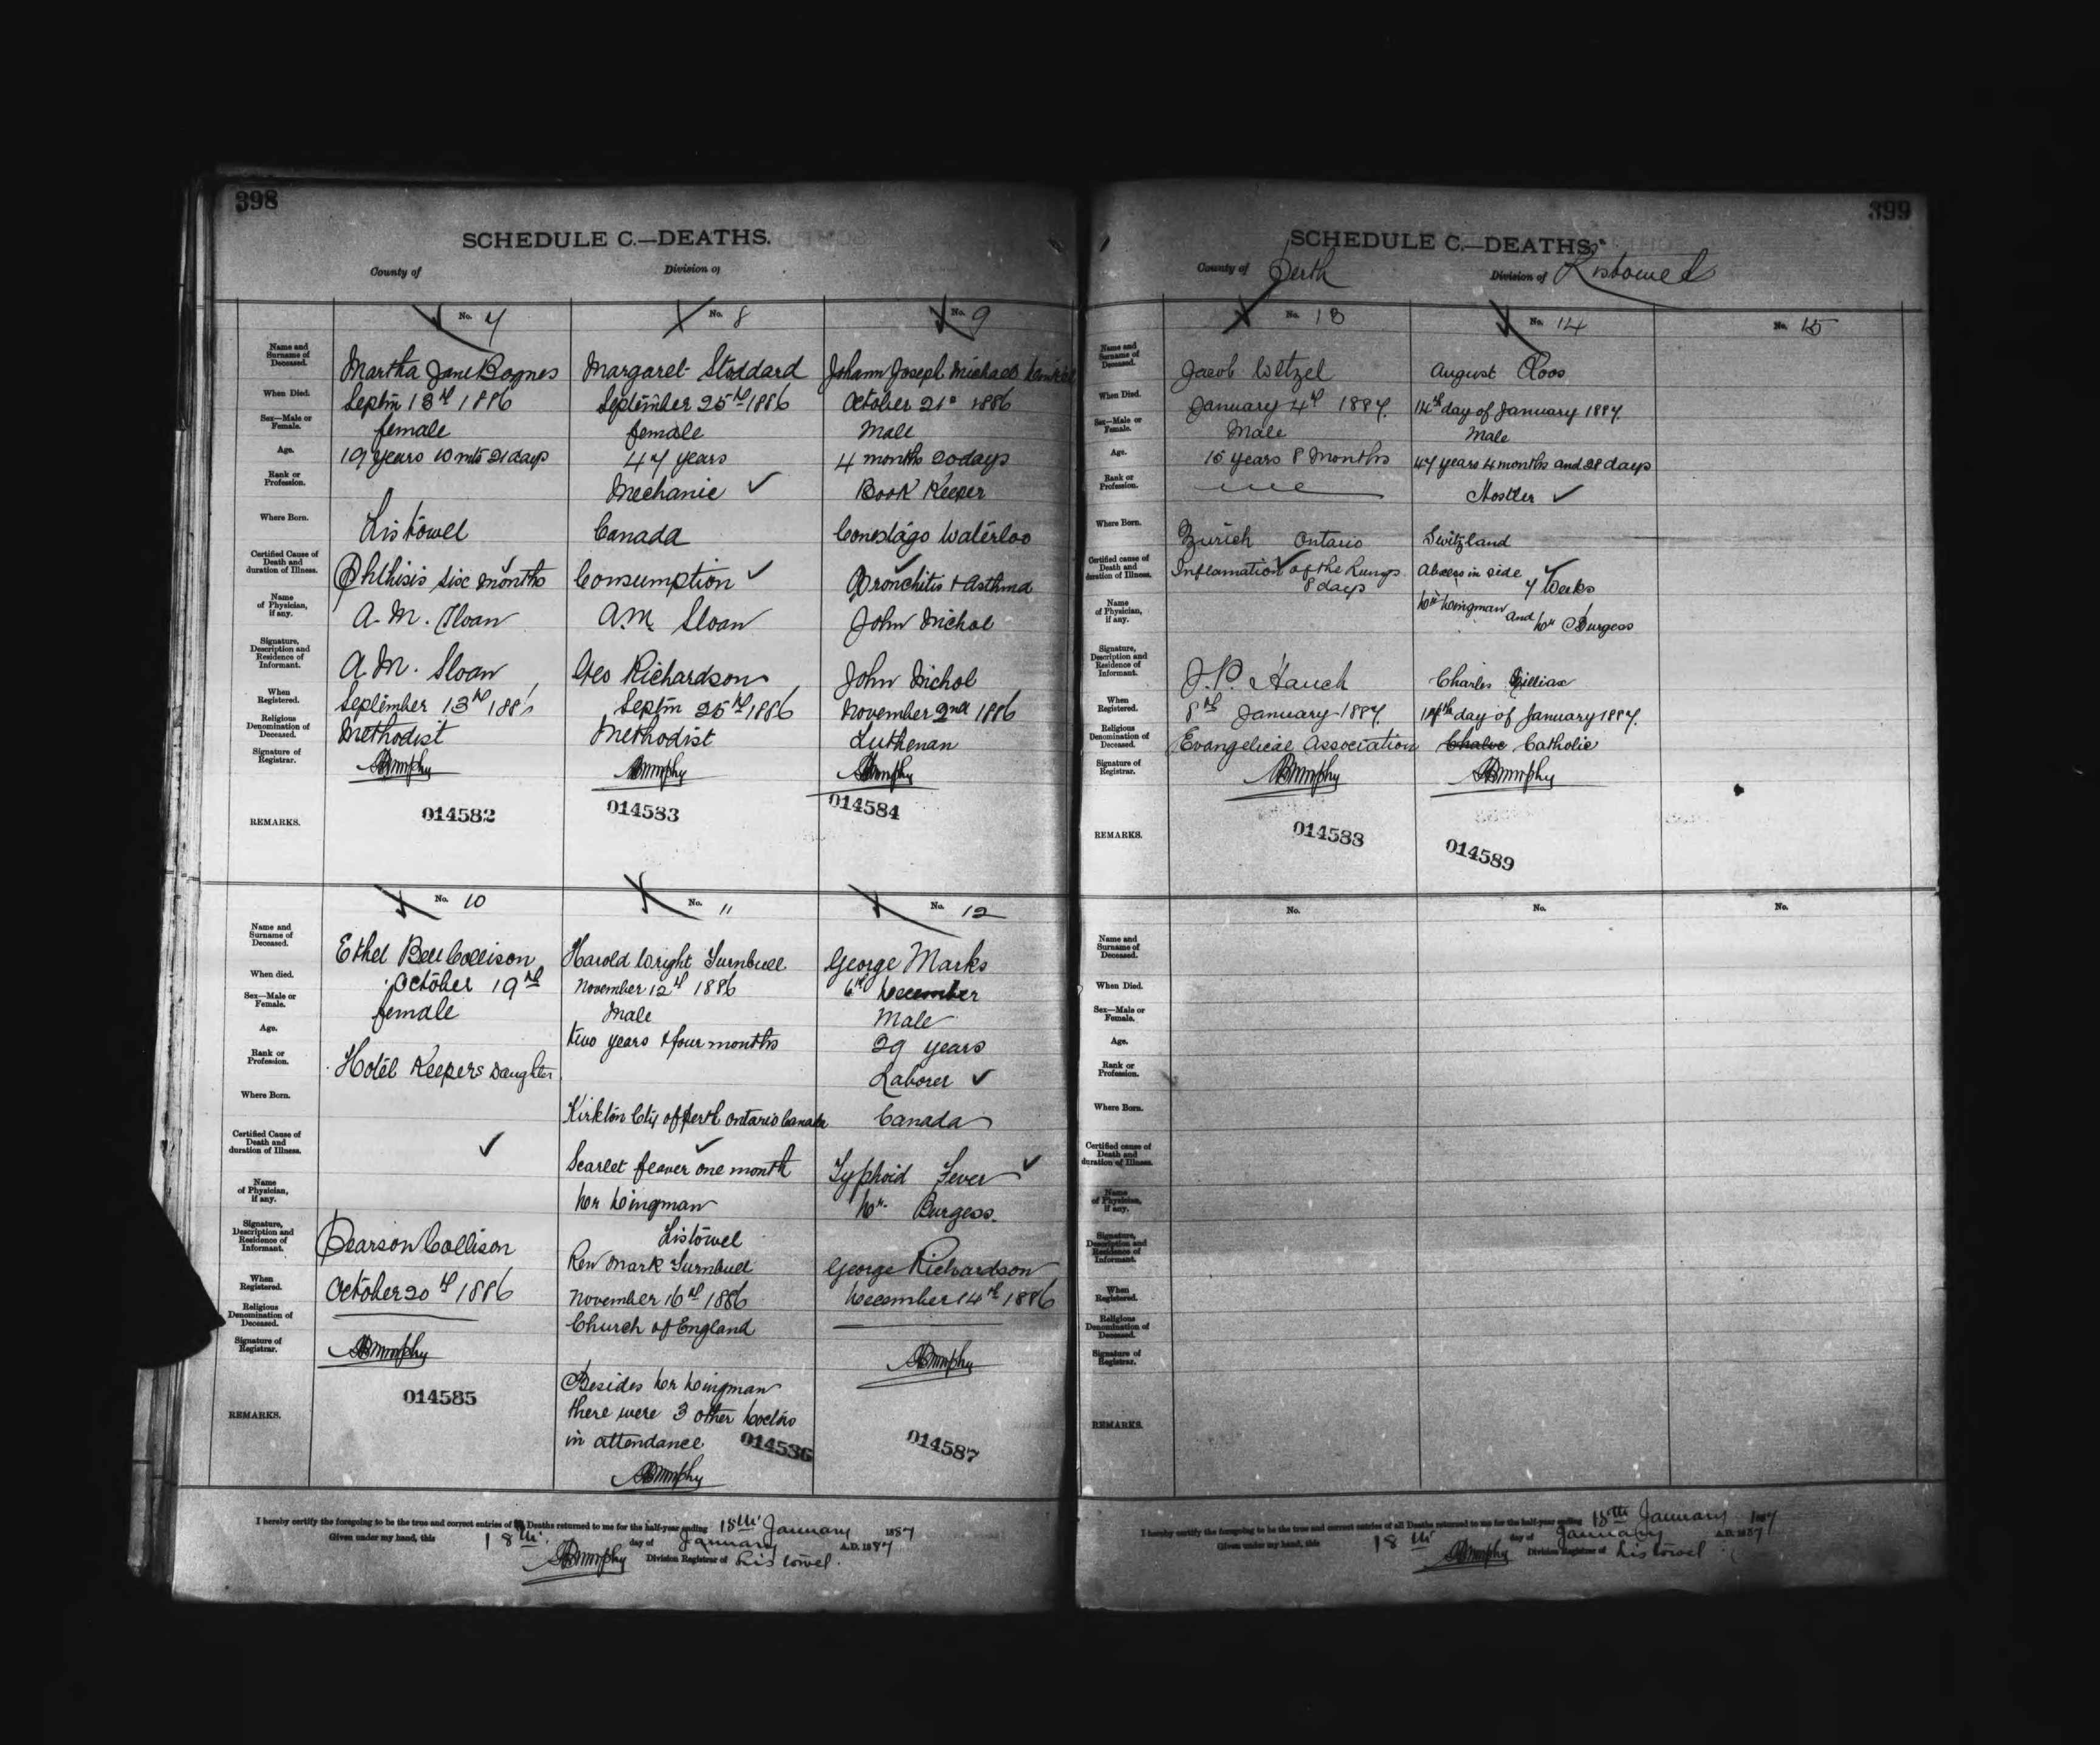 398
SCHEDULE C.—DEATHS.
County of Division of
No. 7 No. 8 No. 9
Name and Surname of Deceased. Martha Jane Margaret Stoddard Johann Joseph Michael
When Died. Septm 13th 1886 September 25th 1886 October 21st 1886
Sex—Male or Female. female female Male
Age. 19 years 10 mts 21 days 47 years 4 months 20 days
Rank or Profession. Mechanic Book Keeper
Where Born. Listowel Canada Conestago Waterloo
Certified Cause of Death and duration of Illness. Phthisis six months Consumption Bronchitis + Asthma
Name of Physician, if any. A. M. Sloan A. M. Sloan John Nichol
Signature, Description and Residence of Informant. A. M. Sloan Geo Richardson John Nichol
When Registered. September 13th 1886 Septm 25th 1886 November 2nd 1886
Religious Denomination of Deceased. Methodist Methodist Lutheran
Signature of Registrar. Murphy Murphy Murphy
REMARKS. 014582 014583 014584
No. 10 No. 11 No. 12
Name and Surname of Deceased. Ethel Bell Collison Harold Wright Turnbull George Marks
When died. October 19th November 12th 1886 6th December
Sex—Male or Female. female Male Male
Age. two years & four months 29 years
Rank or Profession. Hotel Keepers Daughter Laborer
Where Born. Kirkton Cty of Perth Ontario Canada Canada
Certified Cause of Death and duration of Illness. Scarlet feaver one month Typhoid Fever
Name of Physician, if any. Dr Dingman Dr. Burgess.
Listowel
Signature, Description and Residence of Informant. Pearson Collison Rev Mark Turnbull George Richardson
When Registered. October 20th 1886 November 16th 1886 December 14th 1886
Religious Denomination of Deceased. Church of England
Signature of Registrar. Murphy Murphy
REMARKS. 014585 Besides Dr Dingman
there were 3 other Doctors
in attendance 014586 014587
Murphy
I hereby certify the foregoing to be the true and correct entries of all Deaths returned to me for the half-year ending 18th January 1887
Given under my hand, this 18th day of January A.D. 1887
Murphy Division Registrar of Listowel.
399
SCHEDULE C.—DEATHS.
County of Perth Division of Listowel
No. 13 No. 14 No. 15
Name and Surname of Deceased. Jacob Wetzel August Roos
When Died. January 4th 1887. 14th day of January 1887.
Sex—Male or Female. Male Male
Age. 15 years 8 Months 47 years 4 months and 28 days
Rank or Profession. Hostler
Where Born. Zurich Ontario Switzland
Certified cause of Death and duration of Illness. Inflamation of the Lungs 8 days Abscess in side 7 Weeks
Name of Physician, if any. Dr Dingman and Dr Burgess
Signature, Description and Residence of Informant. J. P. Hauch Charles
When Registered. 8th January 1887. day of January 1887.
Religious Denomination of Deceased. Evangelical Association Catholic
Signature of Registrar. Murphy Murphy
REMARKS. 014588 014589
No. No. No.
Name and Surname of Deceased.
When Died.
Sex—Male or Female.
Age.
Rank or Profession.
Where Born.
Certified cause of Death and duration of Illness.
Name of Physician, if any.
Signature, Description and Residence of Informant.
When Registered.
Religious Denomination of Deceased.
Signature of Registrar.
REMARKS.
I hereby certify the foregoing to be the true and correct entries of all Deaths returned to me for the half-year ending 18th January 1887
Given under my hand, this 18th day of January A.D. 1887
Murphy Division Registrar of Listowel